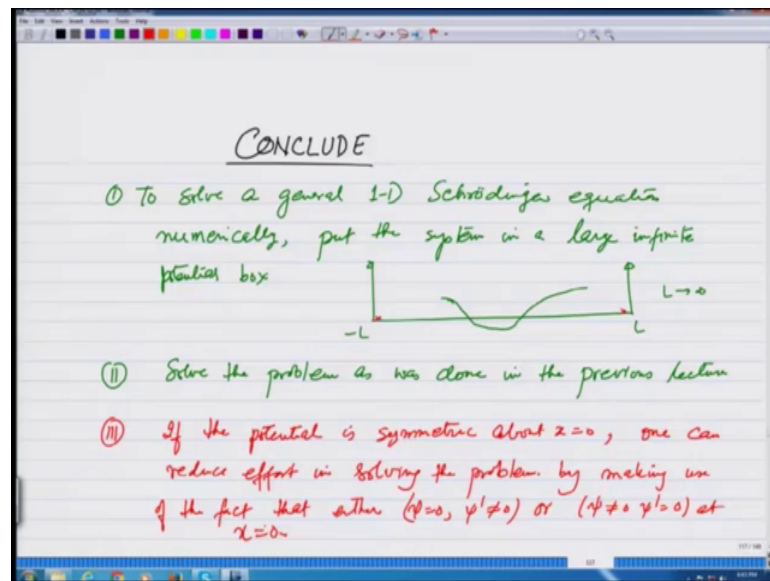 CONCLUDE
① To solve a general 1-D Schrödinger equation
numerically, put the system in a large infinite
potential box
∞ ∞
L→∞
-L L
② Solve the problem as was done in the previous lecture
③ If the potential is symmetric about x=0, one can
reduce effort in solving the problem by making use
of the fact that either (ψ=0, ψ'≠0) or (ψ≠0 ψ'=0) at
x=0.